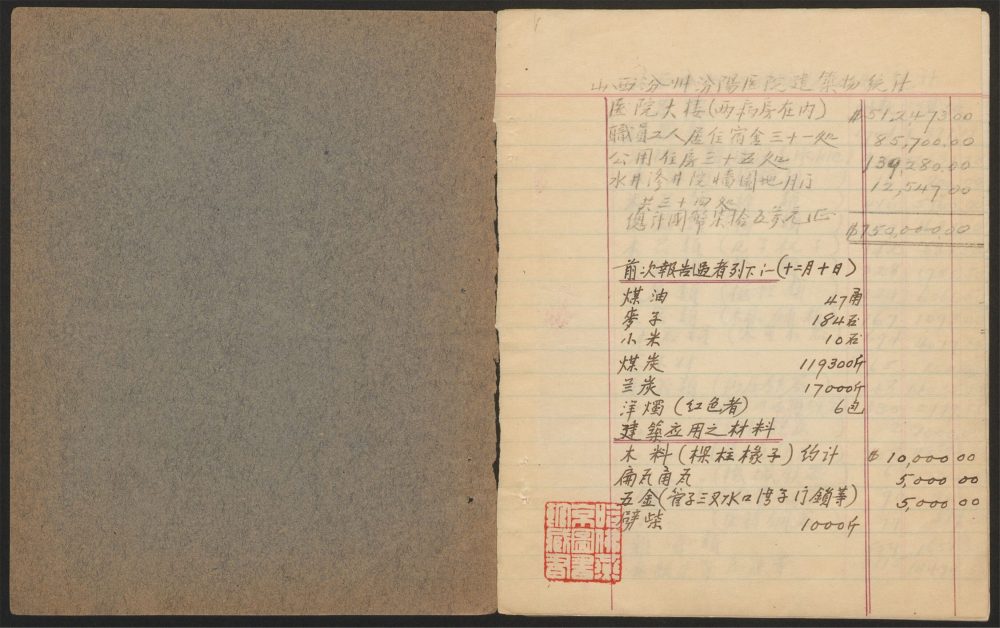 山西汾州汾陽医院建築物統計
医院大楼(两病房在内) $512,473.00
職員工人居住宿舍三十一処 85,700.00
公用住房三十五処 139,280.00
水井滲井院墻園地月门 12,547.00
共三十四処
國幣柒拾五萬元正 $750,000.00
前次報告過者列下:—(十二月十日)
煤油 47甬
麥子 184石
小米 10石
煤炭 119300斤
兰炭 17000斤
洋燭(红色者) 6包
建築应用之材料
木料(樑柱椽子)约计 $10,000 00
扁瓦甬瓦 5,000 00
五金(管子三叉水口湾子门鎖等) 5,000 00
劈柴 1000斤